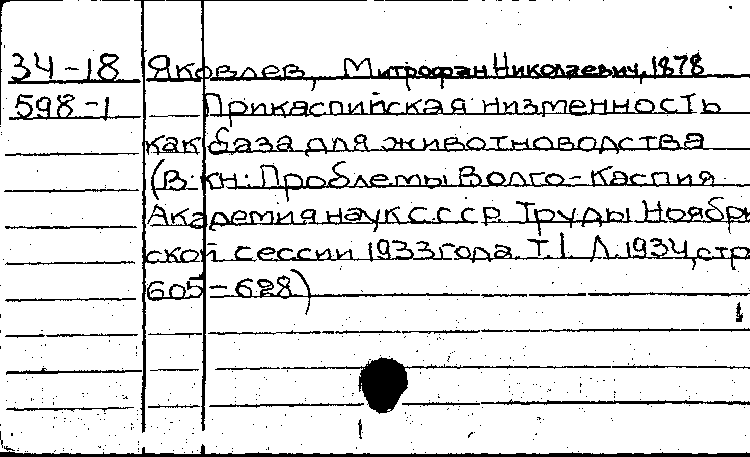 34-18 Яковлев, Митрофан Николаевич, 1878
598-1 Прикаспийская низменность
как база для животноводства
(В кн: Проблемы Волго-Каспия
Академия наук СССР. Труды Ноябрь
ской сессии 1933 года. Т.1. Л. 1934, стр
605-628)